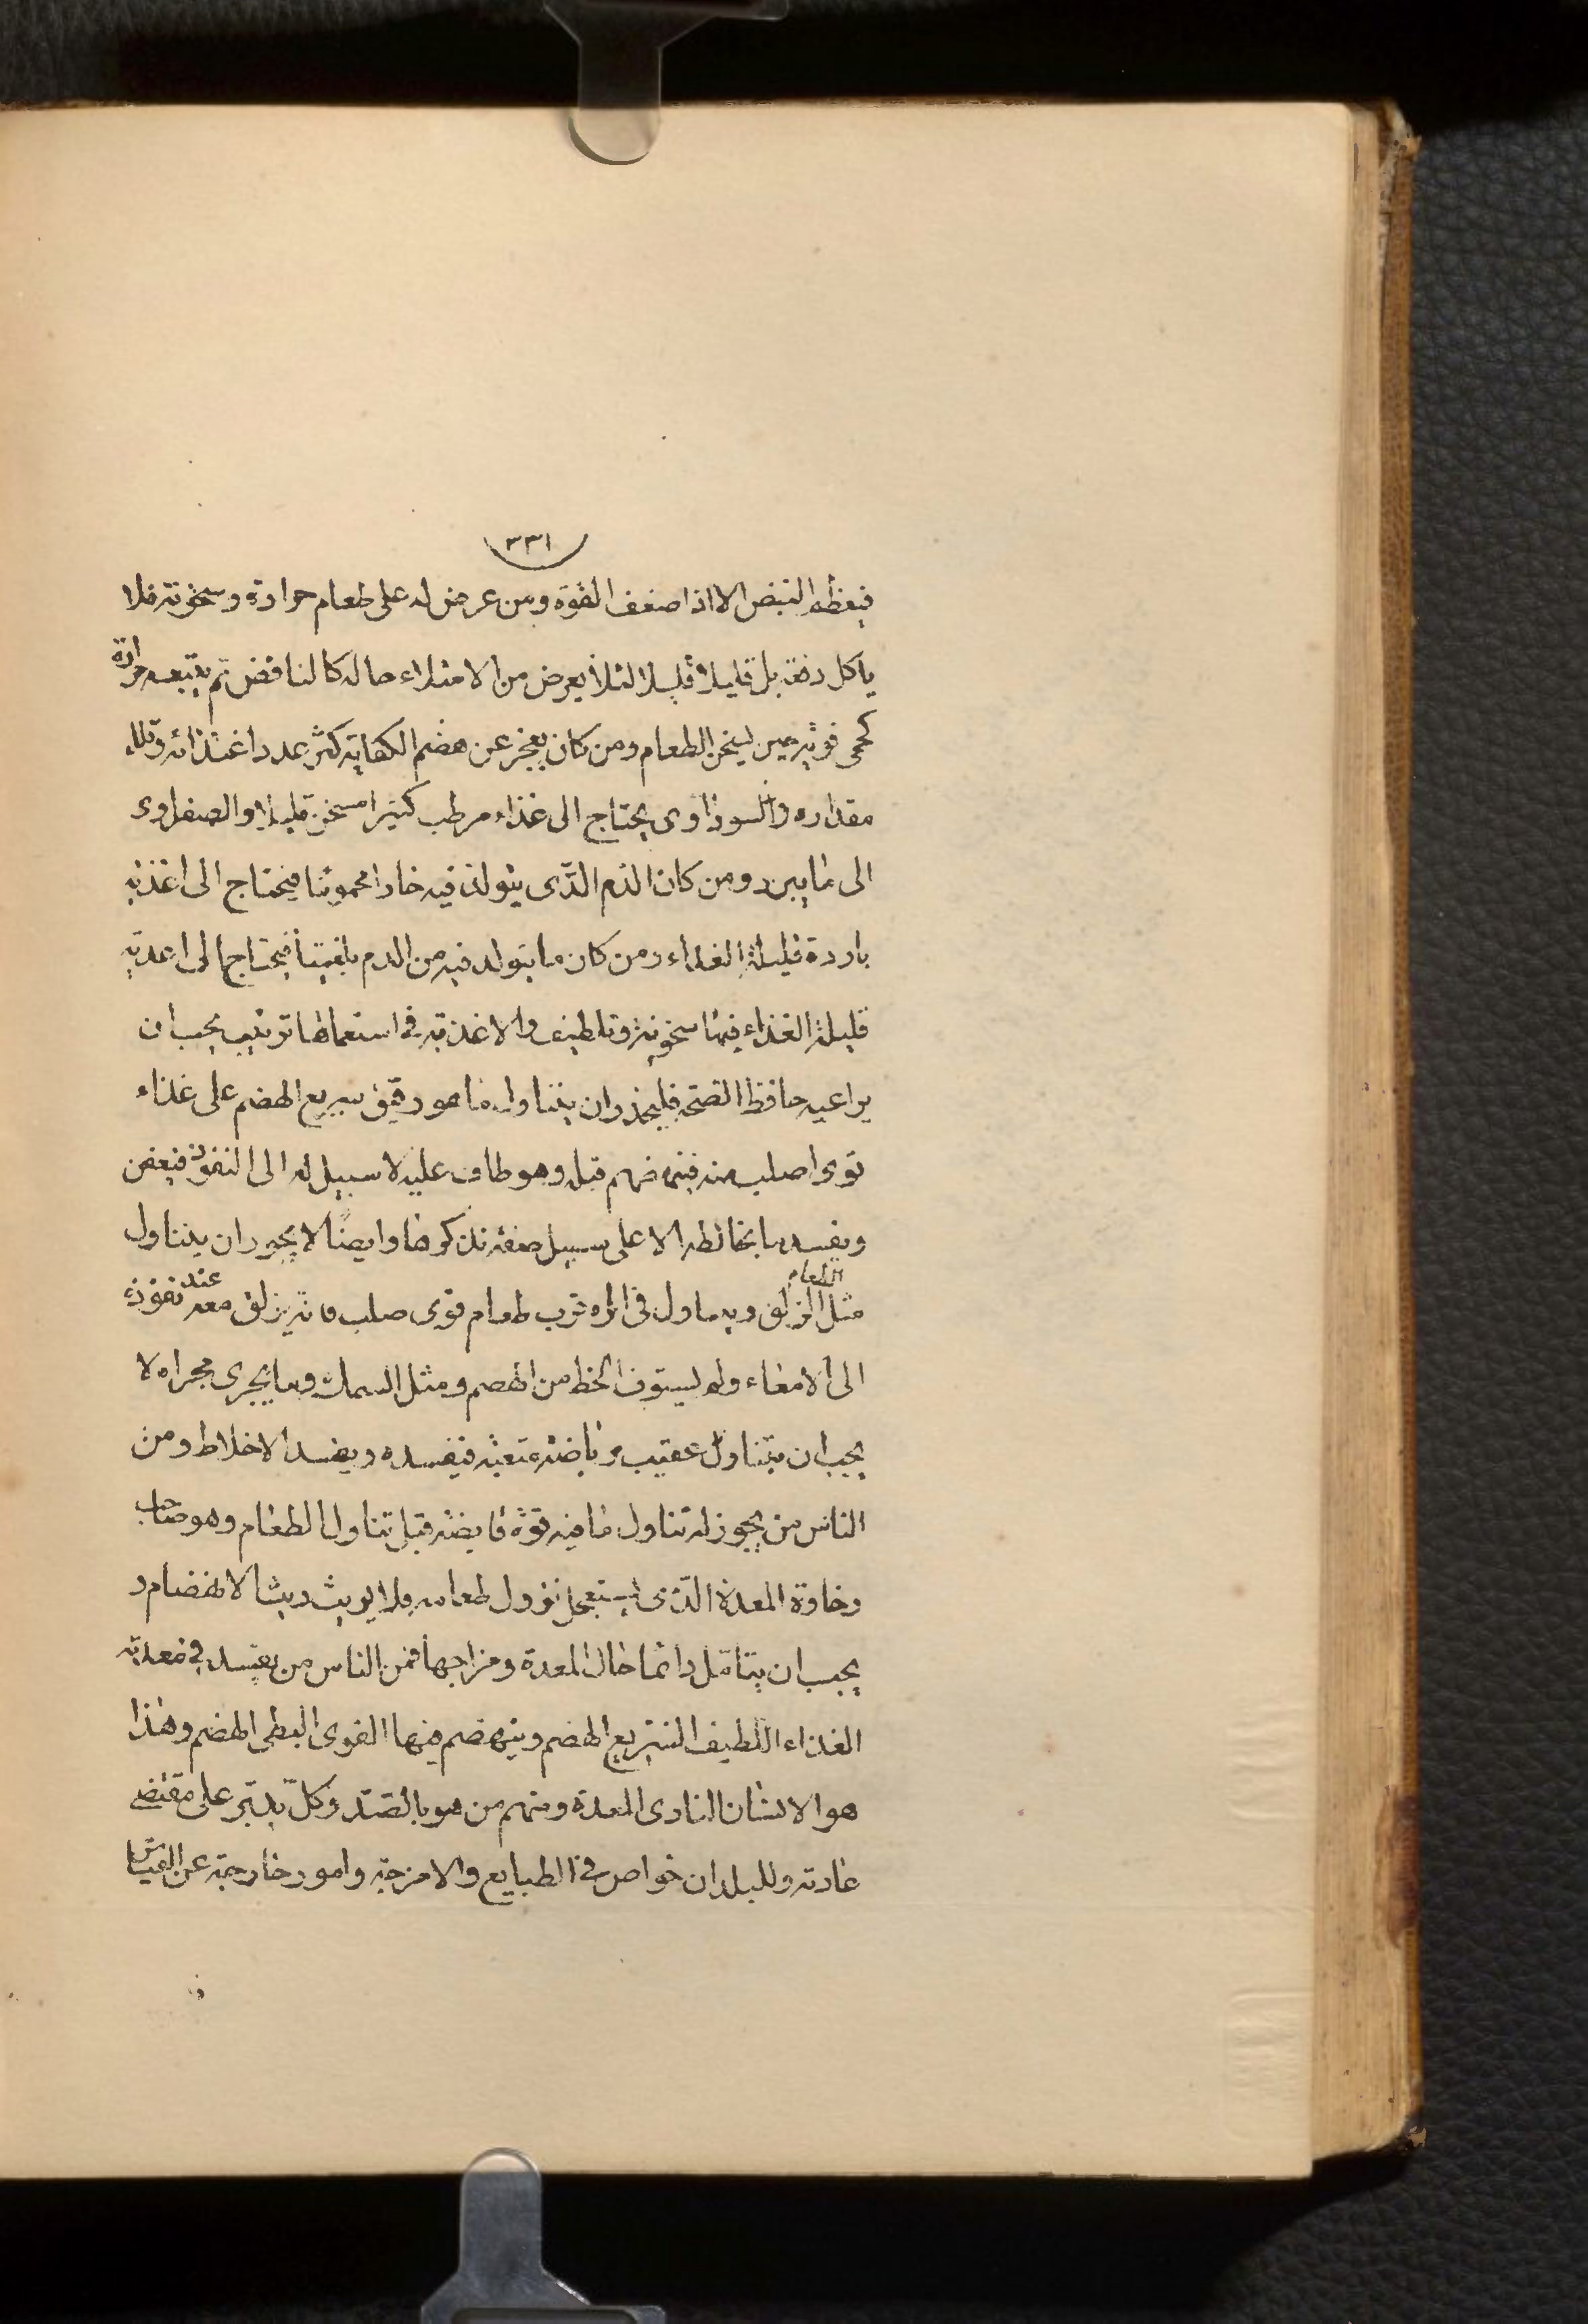 ٣٣١
فيعظم النبض الا اذا ضعف القوة ومن عرض له على طعام حرارة وسخونة فلا
ياكل دفعة بل قليلا قليلا لئلا يعرض من الامتلاء حاله كالنافض ثم يتبعه حرارة
كحمى قوية حين ليسخن الطعام ومن كان يعجز عن هضم الكفاية كثر عدد اغتذائه وقلل
مقداره والسوداوى يحتاج الى غذاء مرطب كثيرا مسخن قليلا والصفراوى
الى ما يبرد ومن كان الدم الذى يتولد فيه حارا محموما فيحتاج الى اغذية
باردة قليلة الغذاء ومن كان ما يتولد فيه من الدم بلغميا فيحتاج الى اغذية
قليلة الغذاء فيها سخونة وتلطيف والاغذية فى استعمالها ترتيب يجب ان
يراعيه حافظ الصحة فليحذر ان يتناول ما هو رقيق سريع الهضم على غذاء
قوى اصلب منه فينهضم قبله وهو طاف عليه لا سبيل له الى النفوذ فيعفن
ويفسد ما يخالطه الا على سبيل صفة نذكرها وايضا لا يجوز ان يتناول
مثل الطعام الزلق ويتناول فى اثره قرب طعام قوى صلب فانه يزلق معه عند نفوذه
الى الامعاء ولم يستوف الحظ من الهضم ومثل السمك وما يجرى مجراه لا
يجب ان يتناول عقيب رياضة متعبة فيفسده ويفسد الاخلاط ومن
الناس من يجوز له تناول ما فيه قوة قابضة قبل تناول الطعام وهو صاحب
رخاوة المعدة الذى يستعجل نزول طعامه فلا يريث ريث الانهضام و
يجب ان يتامل دائما حال المعدة ومزاجها فمن الناس من يفسد فى معدته
الغذاء اللطيف السريع الهضم وينهضم فيها القوى البطى الهضم وهذا
هو الانسان النارى المعدة ومنهم من هو بالضد وكل يدبر على مقتضى
عادته وللبلدان خواص فى الطبايع والامزجة وامور خارجة عن القياس